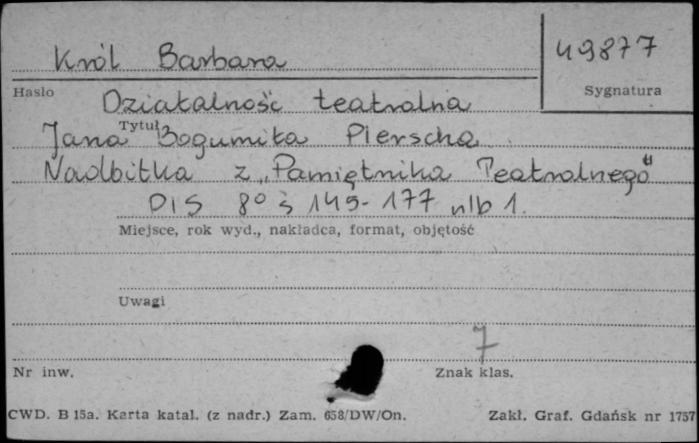 Król Barbara
49877
Hasło
Sygnatura
Działalność teatralna
Tytuł
Jana Bogumiła Plerscha
Nadbitka z „Pamiętnika Teatralnego"
PIS 8° s 149-177 nlb 1.
Miejsce, rok wyd., nakładca, format, objętość
Uwagi
7
Nr inw.
Znak klas.
CWD. B 15a. Karta katal. (z nadr.) Zam. 658/DW/On.
Zakł. Graf. Gdańsk nr 1757